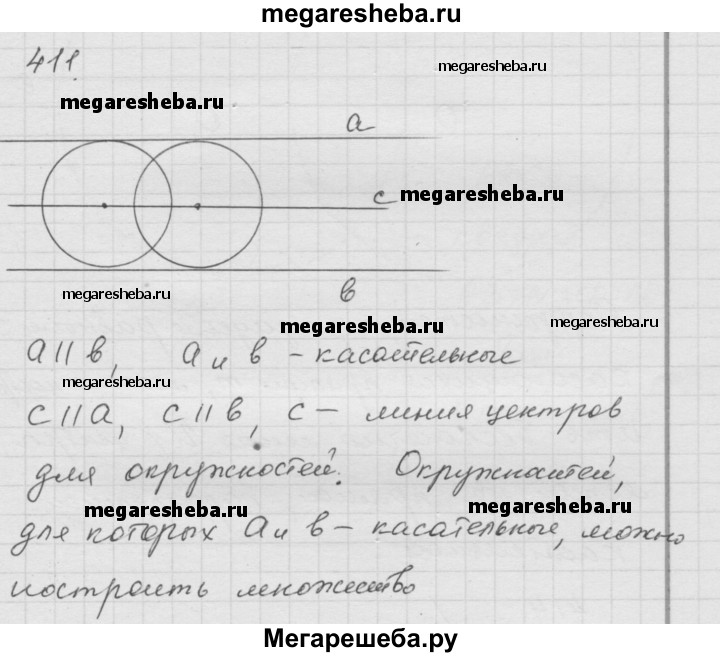 megaresheba.ru
411.
megaresheba.ru
megaresheba.ru
a
c megaresheba.ru
в
megaresheba.ru
megaresheba.ru
megaresheba.ru
a || в, a и в - касательные
megaresheba.ru
c || a, c || в, c — линия центров
для окружностей. Окружностей,
megaresheba.ru
megaresheba.ru
для которых a и в - касательные, можно
построить множество
Мегарешеба.ру